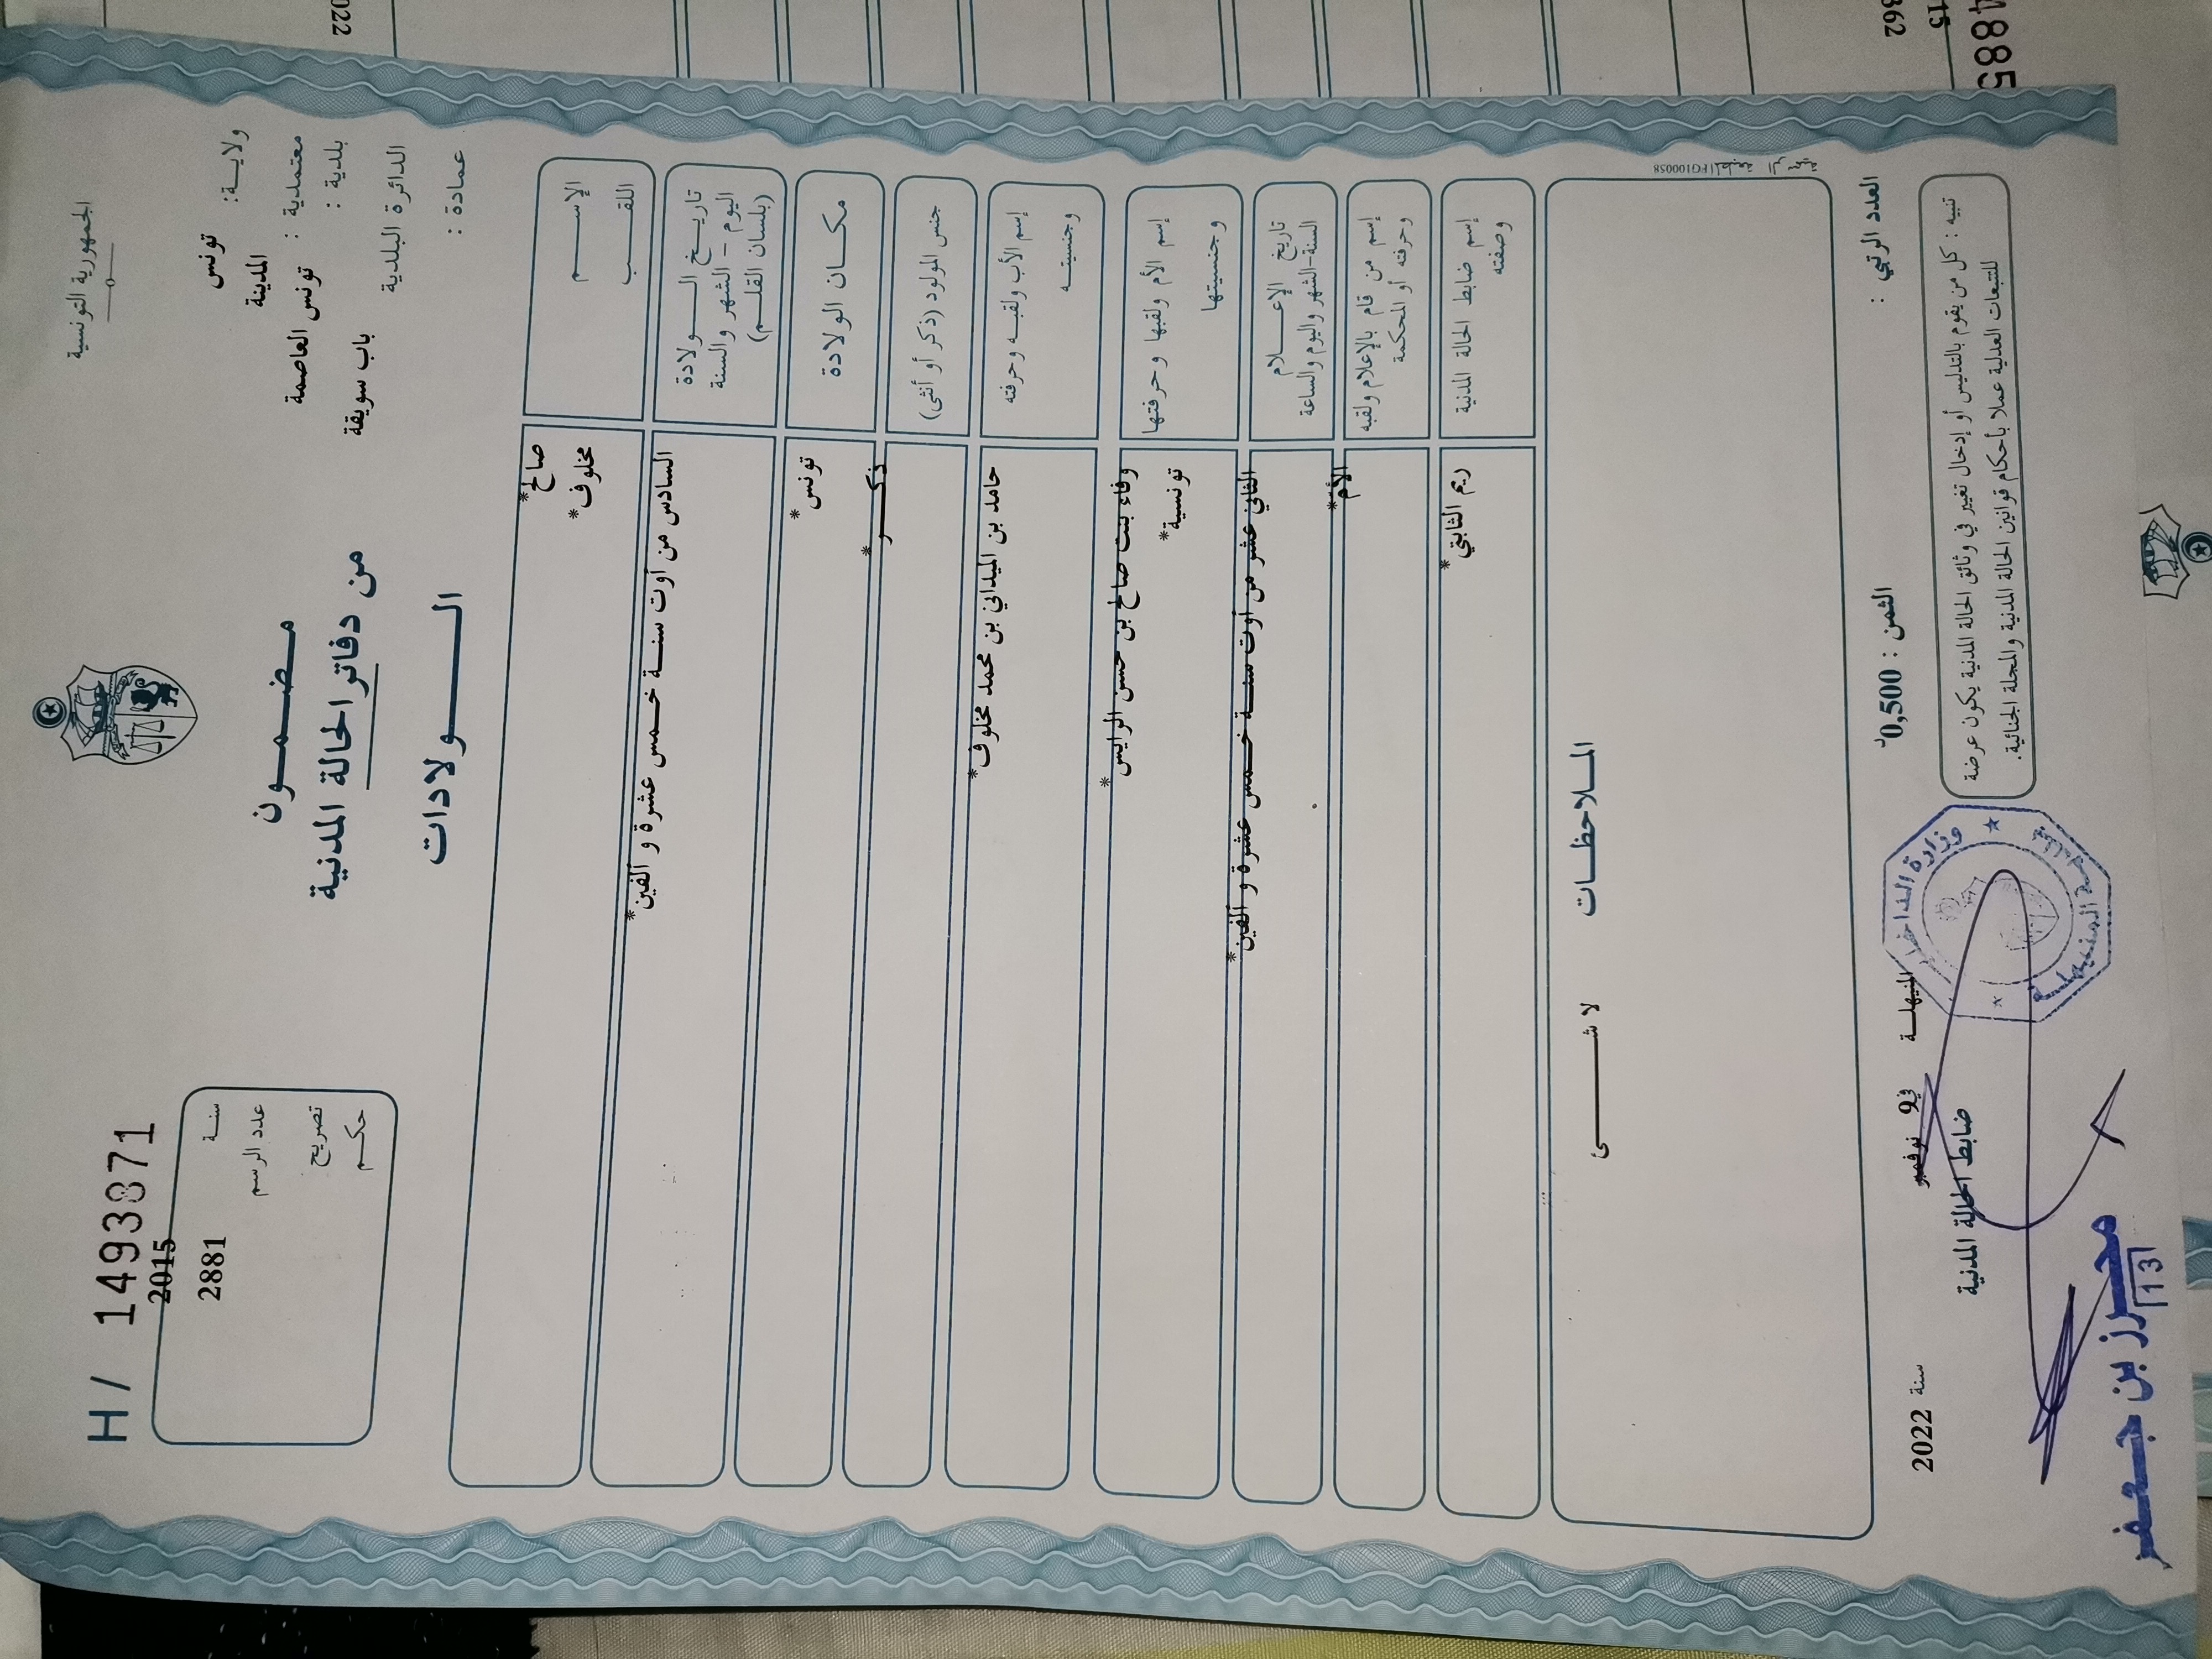 الجمهورية التونسية
H/ 1493871
ولايـــة:
تونس
معتمدية :
المدينة
بلدية :
تونس العاصمة
الدائرة البلدية
باب سويقة
عمادة :
سنـــة
2015
عدد الرسم
2881
تصريح
حكــم
مـضـمـــون
من دفاتر الحالة المدنية
الـــــولادات
الإســـــم
صالح*
اللقـــب
مخلوف*
تاريــخ الـــــولادة
اليوم - الشهر والسنة
(بلسان القلــم)
السادس من أوت سنـــة خـــمس عشرة و ألفين*
مكـــان الولادة
تونس*
جنس المولود (ذكر أو أنثى)
ذكـــر*
إسم الأب ولقبــه وحرفته
وجنسيتــه
حامد بن الميداني بن محمد مخلوف*
إسم الأم ولقبها وحرفتها
وجنسيتها
وفاء بنت صالح بن حسن الرايس*
تونسية*
تاريخ الإعـــلام
السنة-الشهر واليوم والساعة
الثاني عشر من أوت سنـــة خـــمس عشرة و ألفين*
إسم من قام بالإعلام ولقبه
وحرفته أو المحكمة
الأم*
إسم ضابط الحالة المدنية
وصفته
ريم الثابتي*
الملاحظـــات
لا شـــــئ
العدد الرتبي :
الثمن : 0,500د
المنيهلـــة
في 9 نوفمبر
سنة 2022
ضابط الحالة المدنية
تنبيه : كل من يقوم بالتدليس أو إدخال تغيير في وثائق الحالة المدنية يكون عرضة
للتتبعات العدلية عملا بأحكام قوانين الحالة المدنية والمجلة الجنائية.
وزارة الداخلية
محرز بن جعفر
131
022
362
15
4885